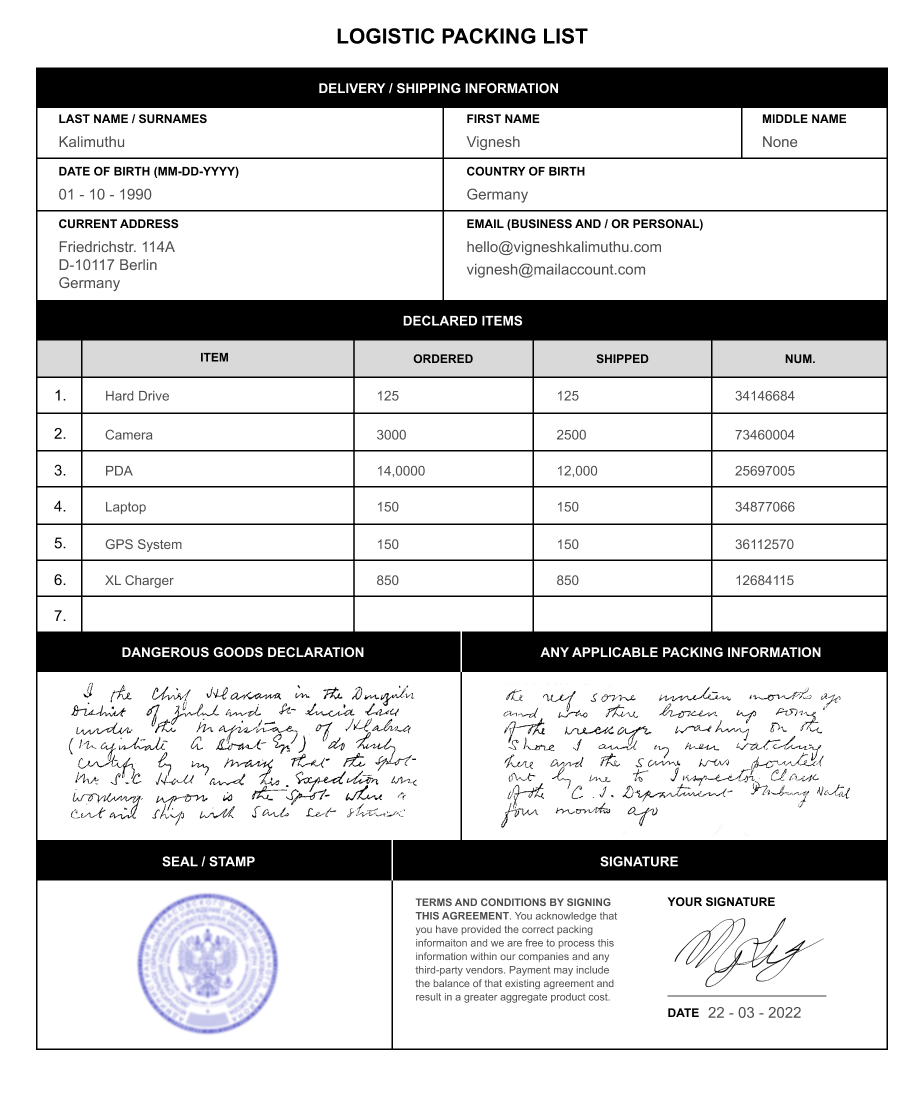 LOGISTIC PACKING LIST
DELIVERY / SHIPPING INFORMATION
LAST NAME / SURNAMES
Kalimuthu
FIRST NAME
Vignesh
MIDDLE NAME
None
DATE OF BIRTH (MM-DD-YYYY)
01 - 10 - 1990
COUNTRY OF BIRTH
Germany
CURRENT ADDRESS
Friedrichstr. 114A
D-10117 Berlin
Germany
EMAIL (BUSINESS AND / OR PERSONAL)
hello@vigneshkalimuthu.com
vignesh@mailaccount.com
DECLARED ITEMS
ITEM ORDERED SHIPPED NUM.
1. Hard Drive 125 125 34146684
2. Camera 3000 2500 73460004
3. PDA 14,0000 12,000 25697005
4. Laptop 150 150 34877066
5. GPS System 150 150 36112570
6. XL Charger 850 850 12684115
7.
DANGEROUS GOODS DECLARATION
I the Chief Hlakana in the
District of Zululand and St Lucia
under the of Hlabisa
(Magistrate A Boast Esq) do hereby
certify by my mark that the spot
Mr S.C Hall and his Expedition are
working upon is the spot where a
certain ship with Sails set
ANY APPLICABLE PACKING INFORMATION
the reef some nineteen months ago
and was there broken up some
of the wreckage washing on the
shore I and my men watching
here and the same was pointed
out by me to Inspector Clark
of the C.I. Department Natal
four months ago
SEAL / STAMP
SIGNATURE
TERMS AND CONDITIONS BY SIGNING
THIS AGREEMENT. You acknowledge that
you have provided the correct packing
informaiton and we are free to process this
information within our companies and any
third-party vendors. Payment may include
the balance of that existing agreement and
result in a greater aggregate product cost.
YOUR SIGNATURE
DATE 22 - 03 - 2022